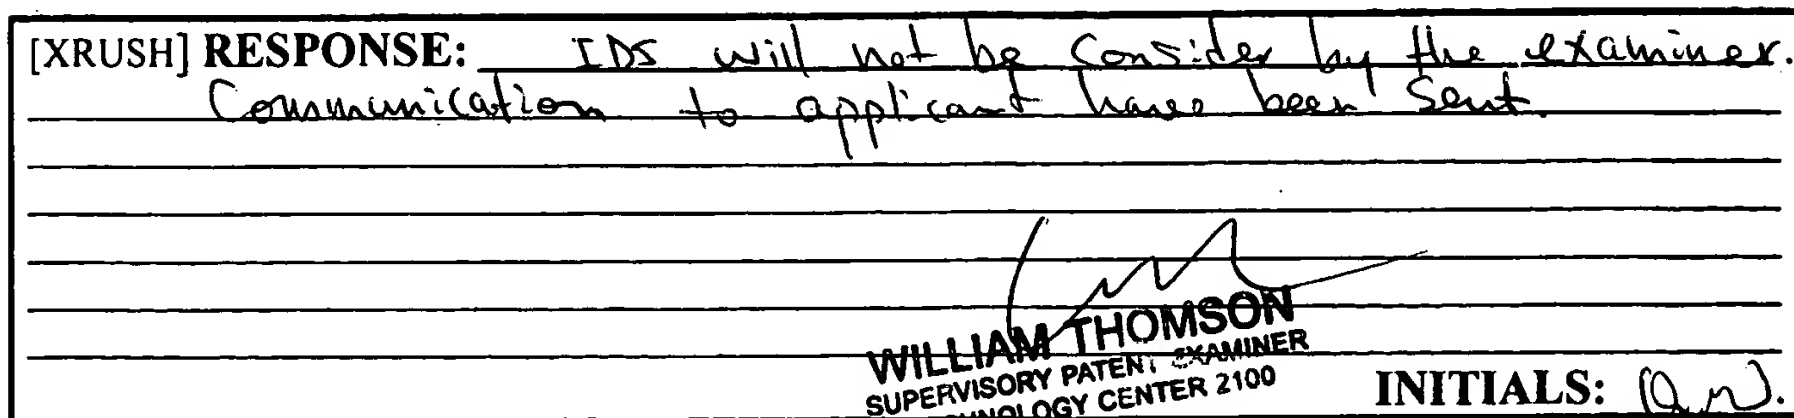 [XRUSH] RESPONSE: IDS will not be consider by the examiner.
Communication to applicant have been sent.
WILLIAM THOMSON
SUPERVISORY PATENT EXAMINER
TECHNOLOGY CENTER 2100
INITIALS: